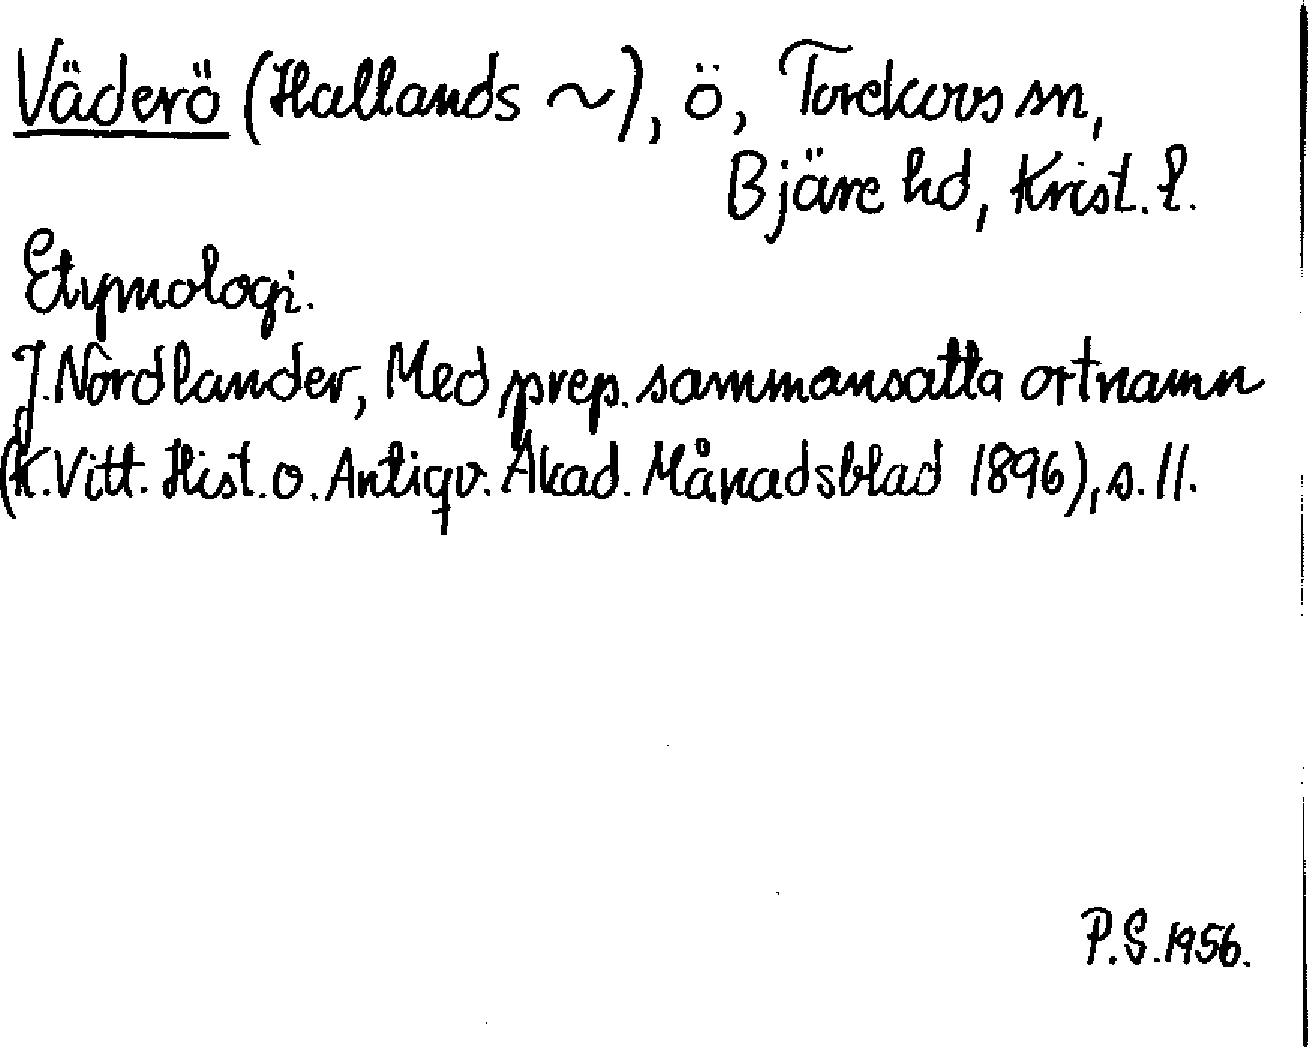 Väderö (Hallands ~), ö, Torekovs sn,
Bjäre hd, Krist. l.
Etymologi.
J. Nordlander, Med prep. sammansatta ortnamn
(K. Vitt. Hist. o. Antiqv. Akad. Månadsblad 1896), s. 11.
P.S. 1956.